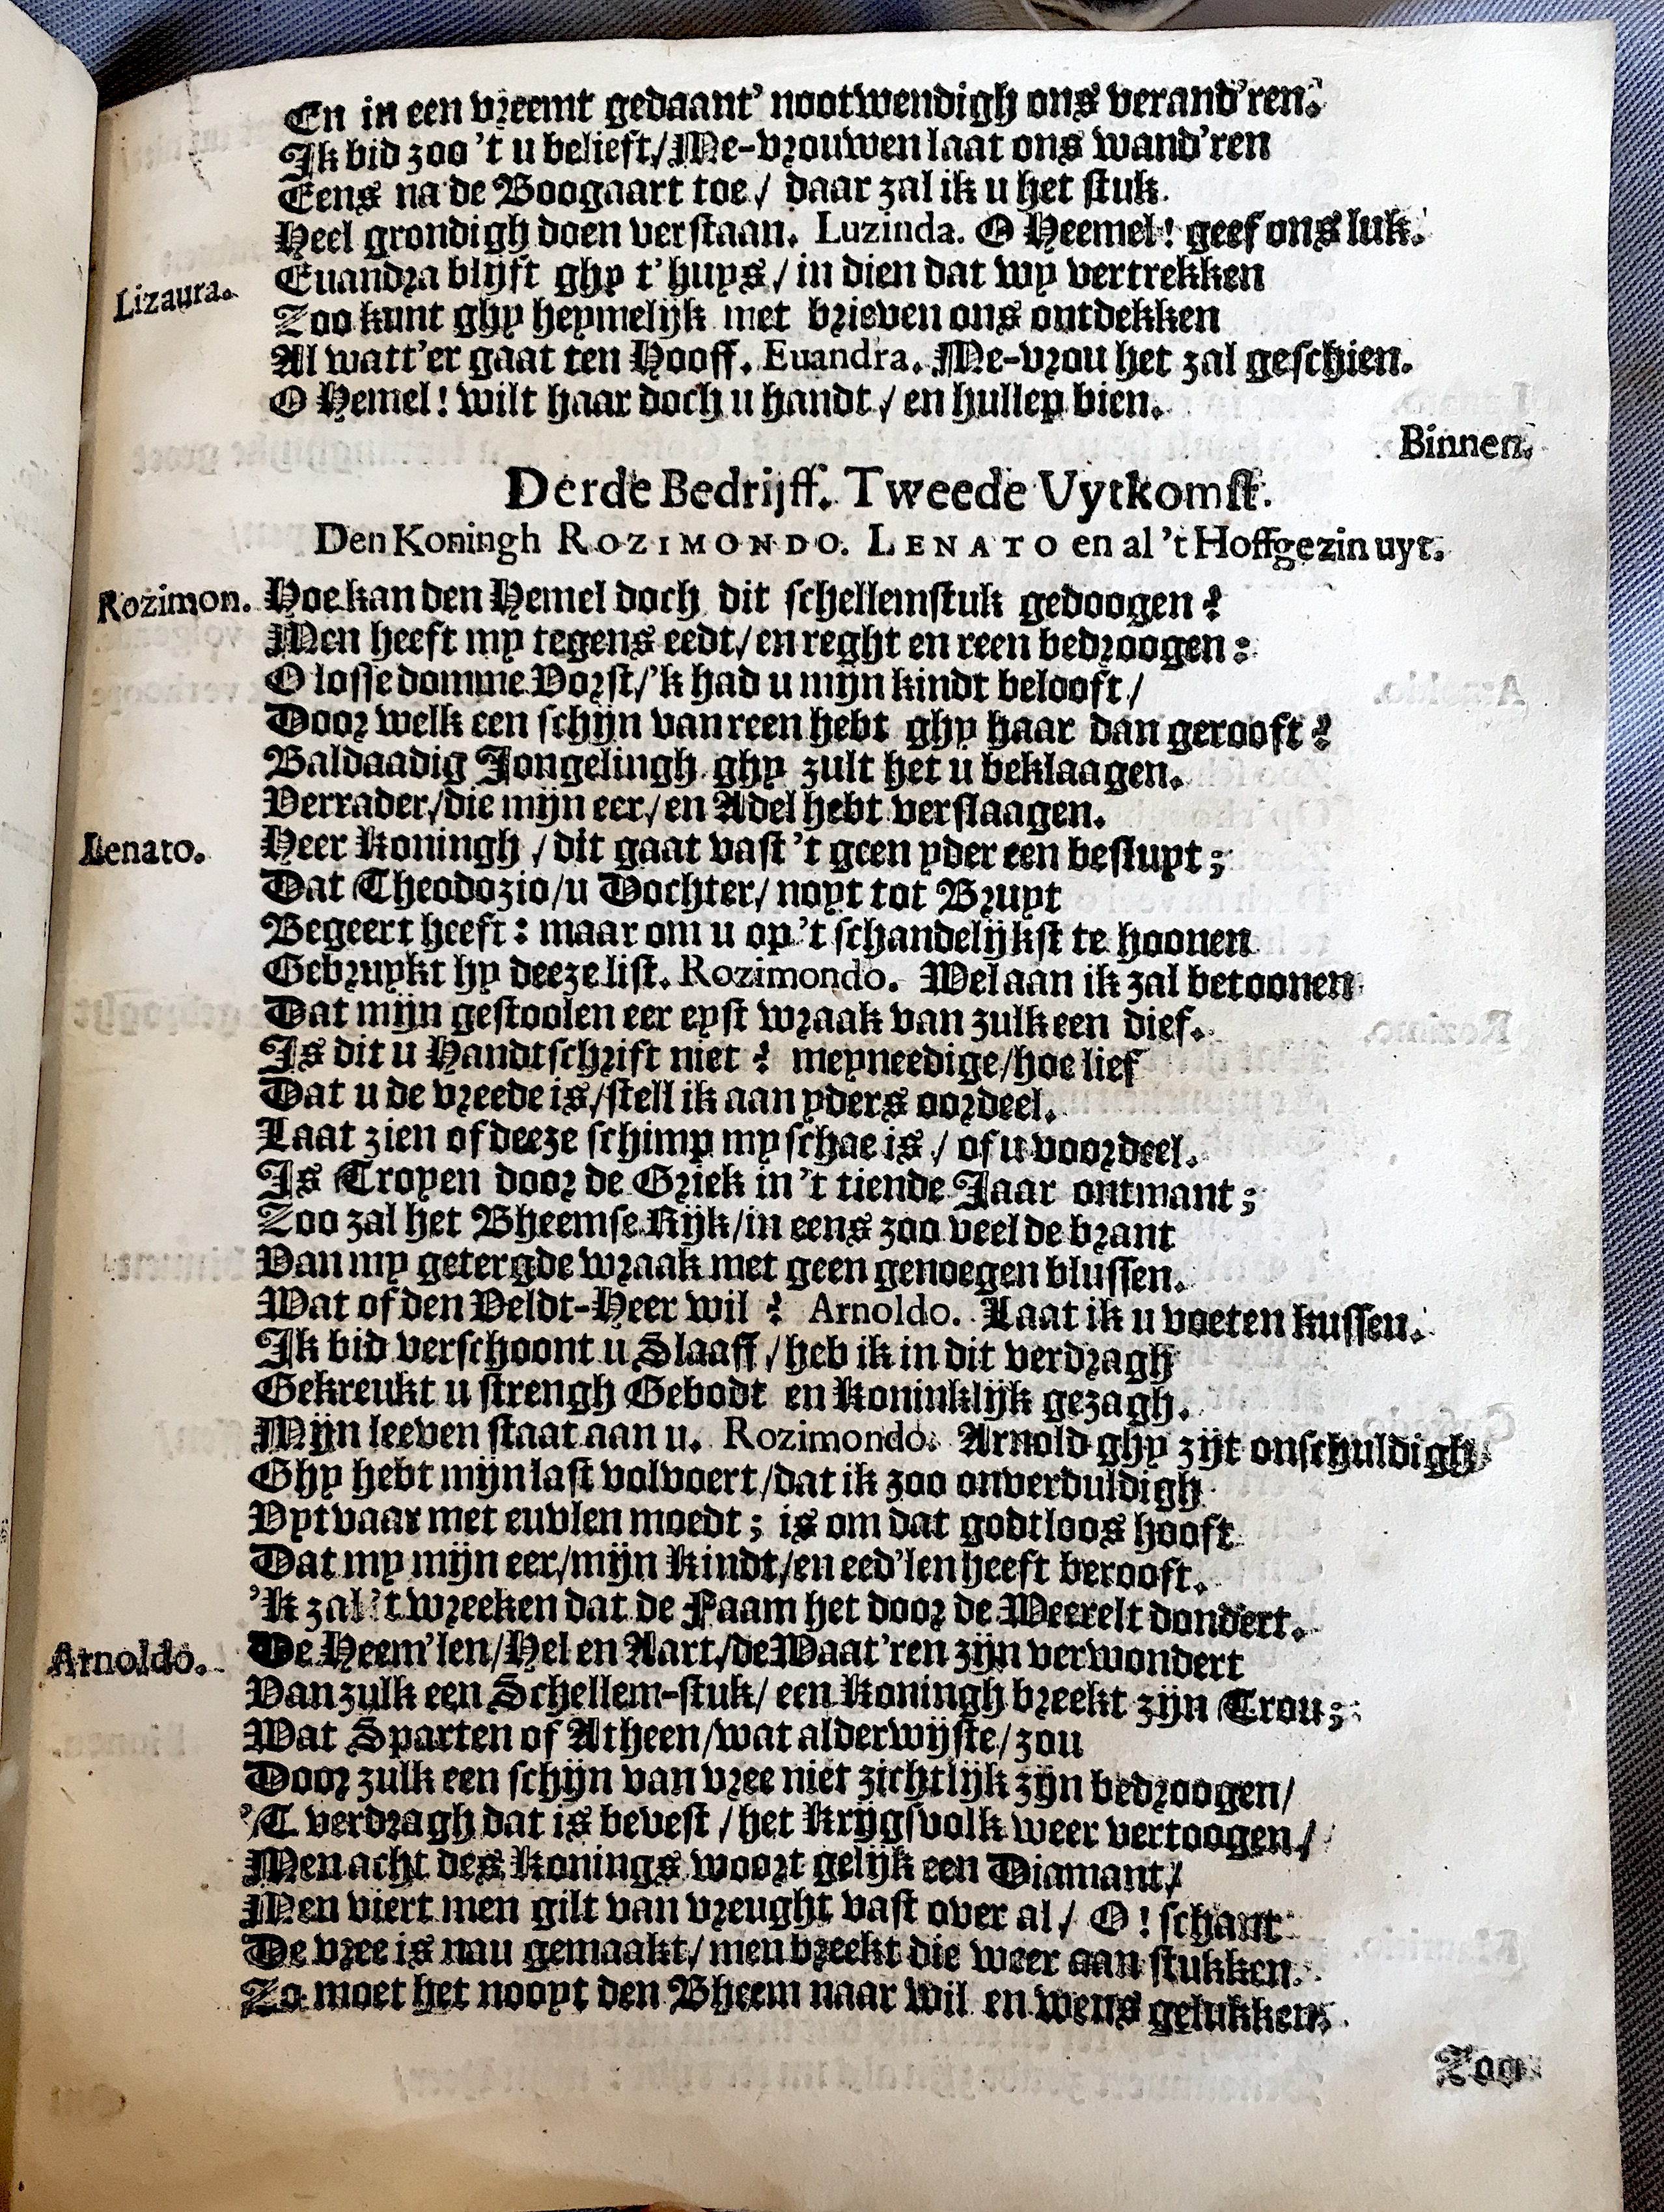 En in een vreemt gedaant' nootwendigh ons verand'ren.
Ik bid zoo 't u belieft/ Me-vrouwen laat ons wand'ren
Eens na de Boogaart toe/ daar zal ik u het stuk.
Heel grondigh doen verstaan. Luzinda. O Heemel! geef ons luk.
Lizaura. Euandra blijft ghy t'huys/ in dien dat wy vertrekken
Zoo kunt ghy heymelijk met brieven ons ontdekken
Al watt'er gaat ten Hooff. Euandra. Me-vrou het zal geschien.
O Hemel! wilt haar doch u handt/ en hullep bien.
Binnen.
Derde Bedrijff. Tweede Uytkomst.
Den Koningh ROZIMONDO. LENATO en al 't Hoffgezin uyt.
Rozimon. Hoe kan den Hemel doch dit schellemstuk gedoogen?
Men heeft my tegens eedt/ en reght en reen bedroogen:
O losse domme Vorst/ 'k had u mijn kindt belooft/
Door welk een schijn van reen hebt ghy haar dan gerooft?
Baldaadig Jongelingh ghy zult het u beklaagen.
Verrader/ die mijn eer/ en Adel hebt verslaagen.
Lenato. Heer Koningh/ dit gaat vast 't geen yder een besluyt;
Dat Theodozio/ u Dochter/ noyt tot Bruyt
Begeert heeft: maar om u op 't schandelijkst te hoonen
Gebruykt hy deeze list. Rozimondo. Welaan ik zal betoonen
Dat mijn gestoolen eer eyst wraak van zulk een dief.
Is dit u Handtschrift niet? meyneedige/ hoe lief
Dat u de vreede is/ stell ik aan yders oordeel.
Laat zien of deeze schimp my schae is/ of u voordeel.
Is Troyen door de Griek in 't tiende Jaar ontmant;
Zoo zal het Bheemse Rijk/ in eens zoo veel de brant
Van my getergde wraak met geen genoegen blussen.
Wat of den Veldt-Heer wil? Arnoldo. Laat ik u voeten kussen.
Ik bid verschoont u Slaaff/ heb ik in dit verdragh
Gekreukt u strengh Gebodt en Koninklijk gezagh.
Mijn leeven staat aan u. Rozimondo. Arnold ghy zijt onschuldigh
Ghy hebt mijn last volvoert/ dat ik zoo onverduldigh
Uytvaar met euvlen moedt; is om dat godtloos hooft
Dat my mijn eer/ mijn Kindt/ en eed'len heeft berooft.
'K zal 't wreeken dat de Faam het door de Weerelt dondert.
Arnoldo. De Heem'len/ Hel en Aart/ de Waat'ren zijn verwondert
Van zulk een Schellem-stuk/ een Koningh breekt zijn Trou;
Wat Sparten of Atheen/ wat alderwijste/ zou
Door zulk een schijn van vree niet zichtlijk zijn bedroogen/
'T verdragh dat is bevest/ het Krijgsvolk weer vertoogen/
Men acht des Konings woort gelijk een Diamant/
Men viert men gilt van vreught vast over al/ O! schant
De vree is nau gemaakt/ men breekt die weer aan stukken.
Zo moet het nooyt den Bheem naar wil en wens gelukken.
Zoo